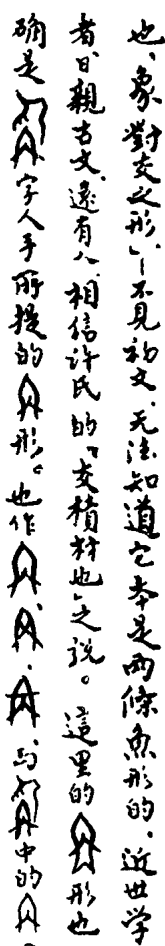 也、象對交之形」—不見初文、无法知道它本是兩條魚形的、近世学
者日親古文、遂有人相信許氏的「交積材也」之説。這里的形也
确是字人手所提的形。也作、、、与中的